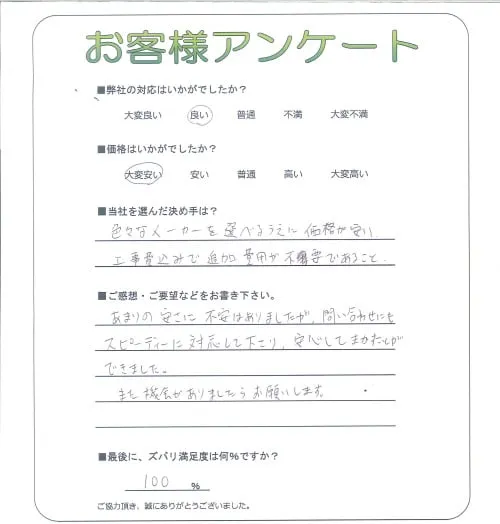 お客様アンケート
■弊社の対応はいかがでしたか？
大変良い 良い 普通 不満 大変不満
■価格はいかがでしたか？
大変安い 安い 普通 高い 大変高い
■当社を選んだ決め手は？
色々なメーカーを選べるうえに価格が安い、
工事費込みで追加費用が不要であること。
■ご感想・ご要望などをお書き下さい。
あまりの安さに不安はありましたが、問い合わせにも
スピーディーに対応して下さり、安心してまかせることが
できました。
また機会がありましたらお願いします。
■最後に、ズバリ満足度は何％ですか？
100 ％
ご協力頂き、誠にありがとうございました。